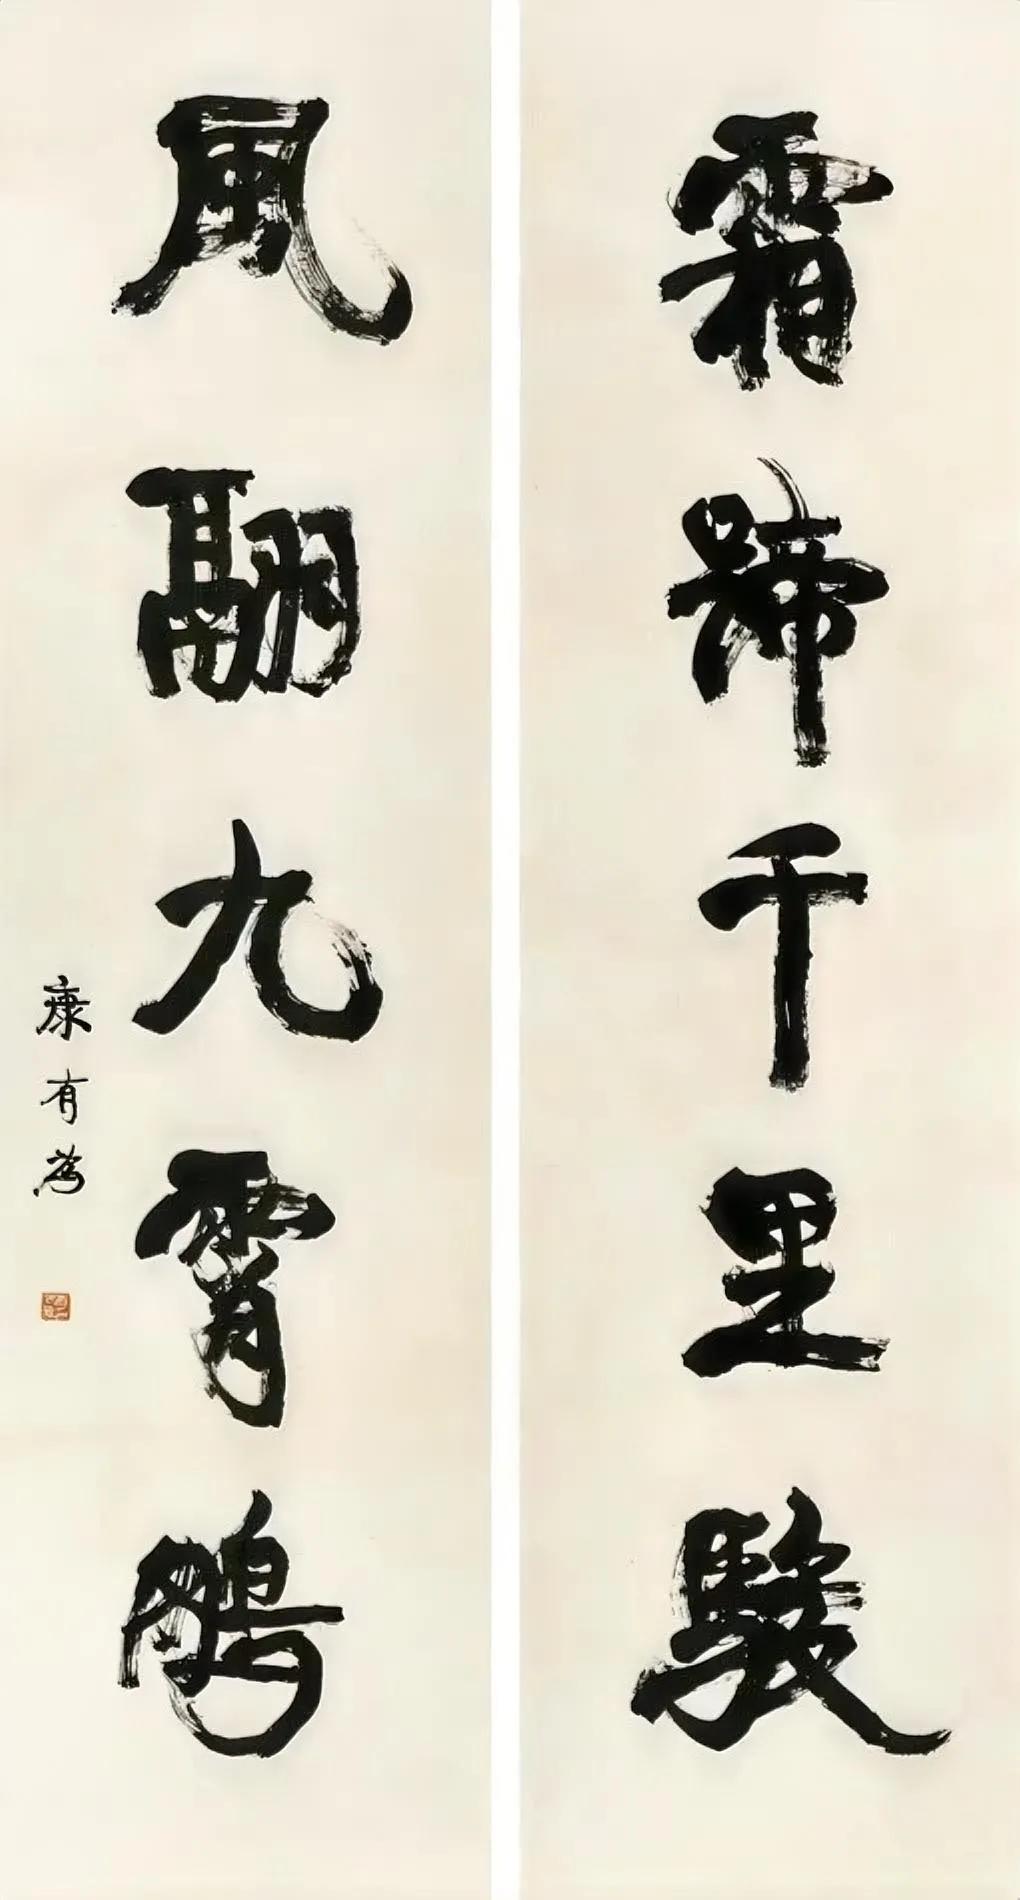 霜蹄千里駿
風翮九霄鵬
康有為